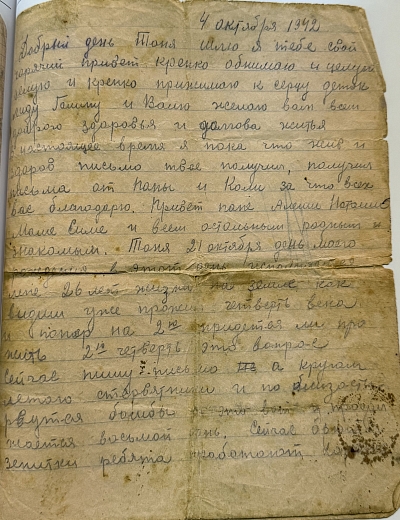 4 октября 1942
Добрый день Тоня шлю я тебе свой
горячий привет крепко обнимаю и целую
целую и крепко прижимаю к сердцу деток
Галину и Валю желаю вам всем
доброго здоровья и долгова житья
в настоящее время я пока что жив и
здоров письмо твое получил, получил
письма от Папы и Коли за что всех
вас благодарю. Привет папе
Маме Симе и всем остальным родным и
знакомым. Тоня 21 октября день моего
рождения в этот день исполнится
мне 26 лет жизни на земле как
видем уже прожил четверть века
и попер на 2ю придется ли про
жить 2ю четверть это вопрос
Сейчас пишу письмо а кругом
летают стервятники и по близости
рвутся бомбы и это всё
жается восьмой день. Сейчас
зенитки ребята работают